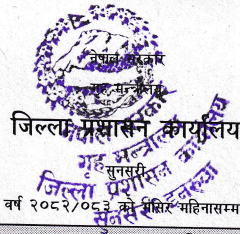 नेपाल सरकार
गृह मन्त्रालय
जिल्ला प्रशासन कार्यालय
सुनसरी
वर्ष २०८२/०८३ को मंसिर महिनासम्म
नेपाल सरकार
गृह मन्त्रालय
जिल्ला प्रशासन कार्यालय
सुनसरी, इनरुवा